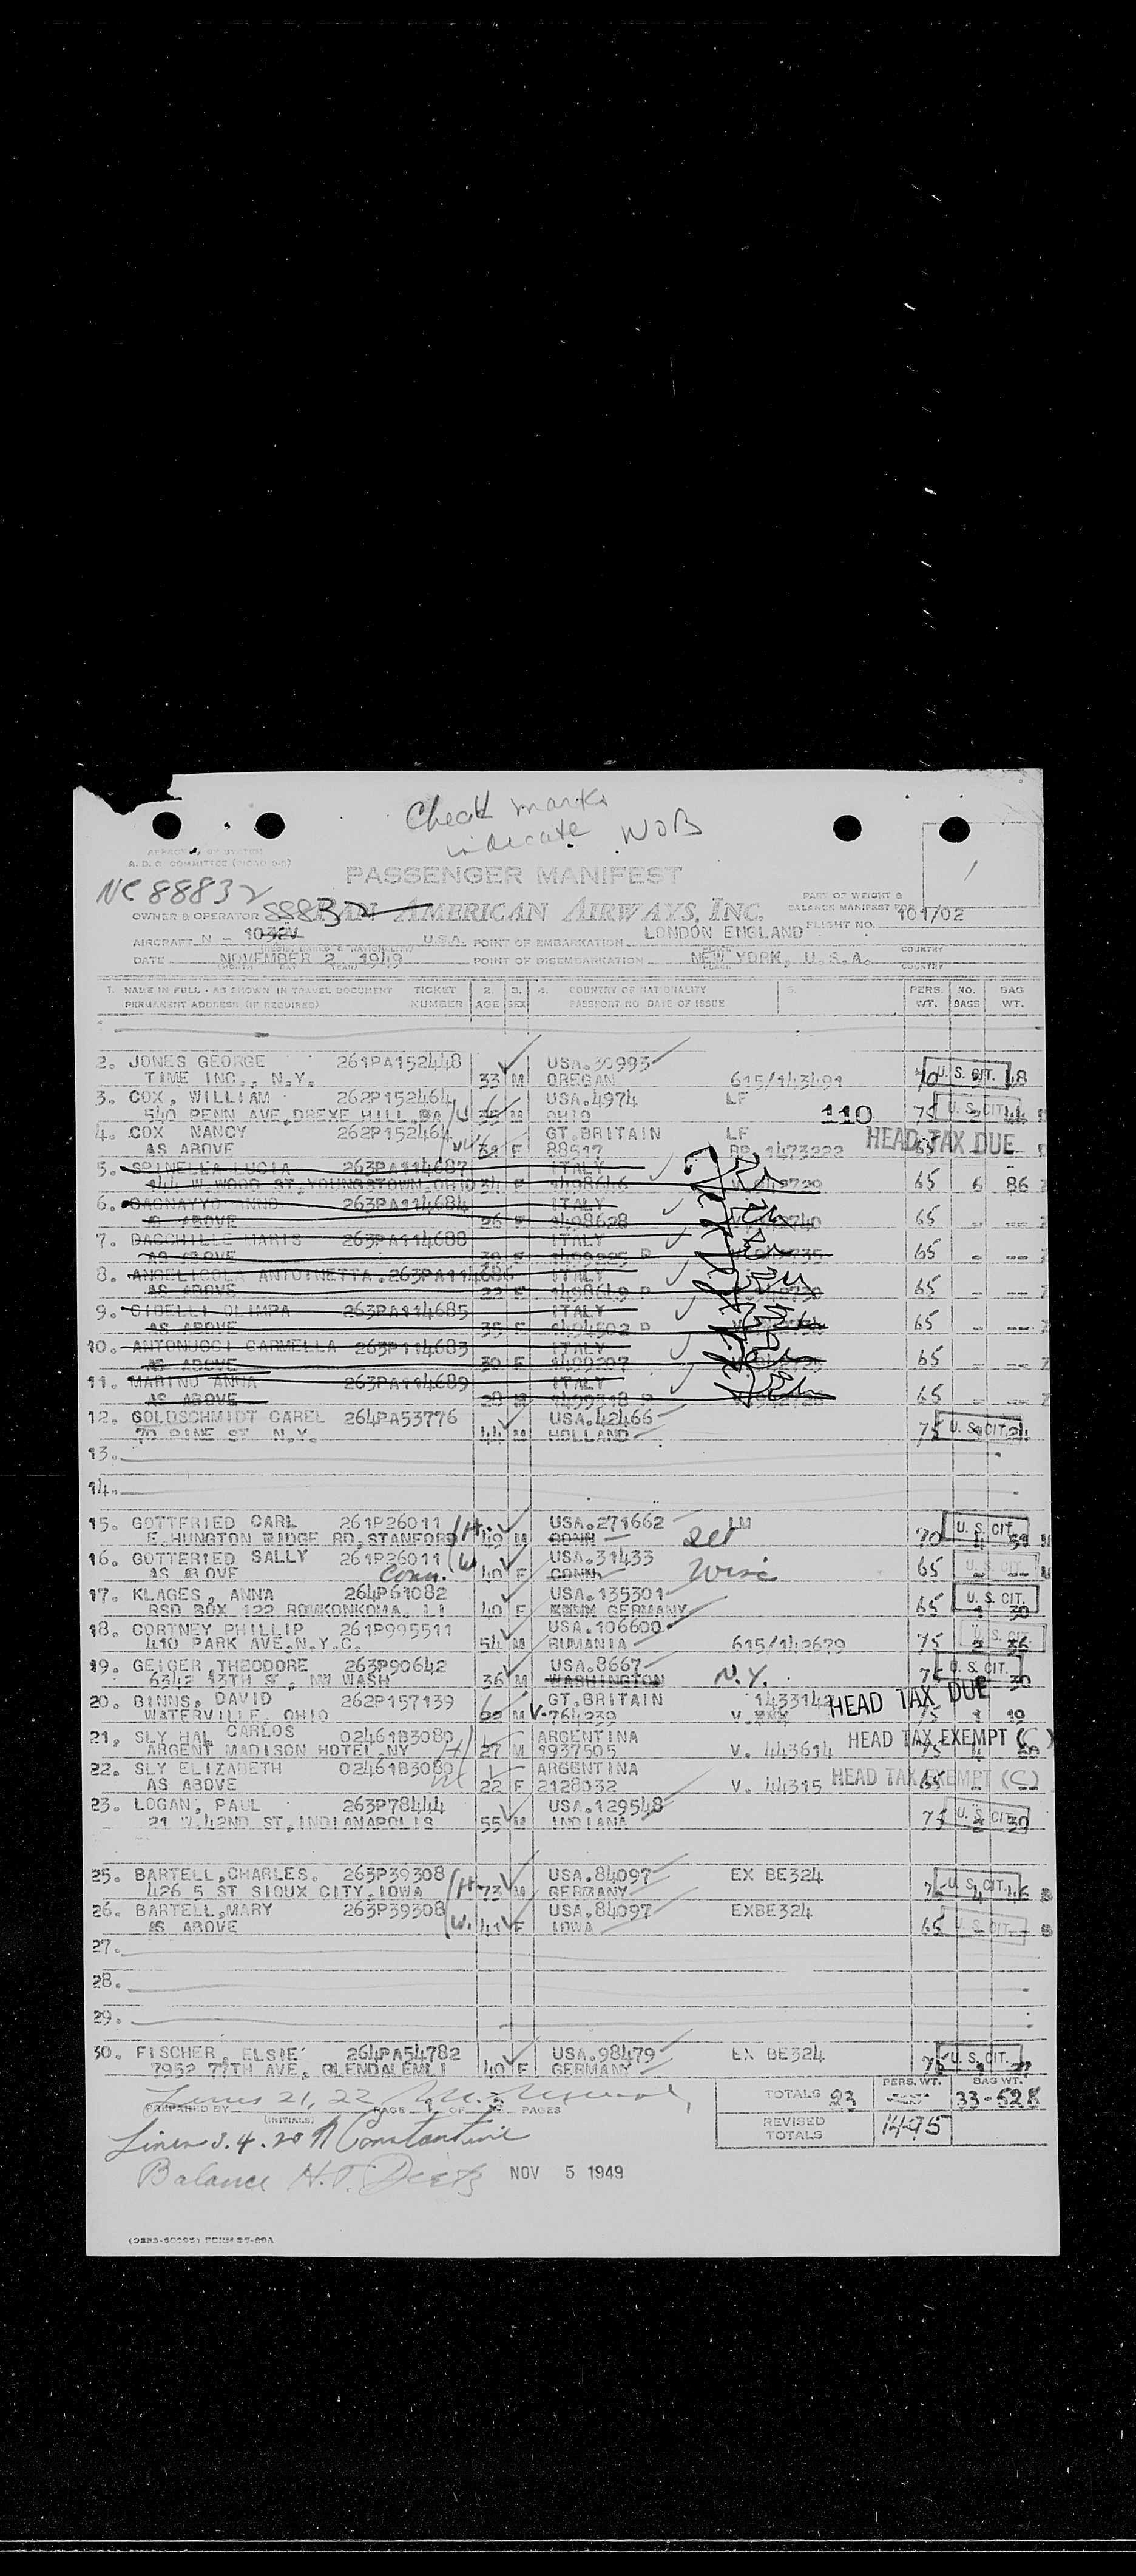 Check marks
indicate WOB
A. D. C. COMMITTEE
NC 88832
PASSENGER MANIFEST
PART OF WEIGHT &
BALANCE MANIFEST FOR
OWNER & OPERATOR 88832 PAN AMERICAN AIRWAYS, INC. FLIGHT NO. 101/02
AIRCRAFT N - 1032V U.S.A. POINT OF EMBARKATION LONDON ENGLAND COUNTRY
DATE NOVEMBER 2 1949 POINT OF DISEMBARKATION NEW YORK, U.S.A.
PLACE COUNTRY
1. NAME IN FULL - AS SHOWN IN TRAVEL DOCUMENT TICKET 2. 3. 4. COUNTRY OF NATIONALITY 5. PERS. NO. BAG
PERMANENT ADDRESS (IF REQUIRED) NUMBER AGE SEX PASSPORT NO. DATE OF ISSUE WT. BAGS WT.
2. JONES GEORGE 261PA152448 USA.30993
TIME INC., N.Y. 33 M OREGAN 615/143491 70 U. S. CIT. 48
3. COX, WILLIAM 262P152464 USA.4974 LF
540 PENN AVE,DREXE HILL,PA 35 M OHIO 110 75 U. S. CIT. 44
4. COX NANCY 262P152464 GT.BRITAIN LF HEAD TAX DUE
AS ABOVE 32 F 88517 1473222 65
5. SPINELLA LUCIA 263PA114687 ITALY
144 W.WOOD ST.YOUNGSTOWN.OHIO 31 F 1498646 65 6 86
6. DAGNAYYO ANNO 263PA114684 ITALY
AS ABOVE 26 F 1498628 65
7. DACCHILLE MARIS 263PA114688 ITALY
AS ABOVE 30 F 65
8. ANGELICOLA ANTOINETTA.263PA114686 ITALY
AS ABOVE 22 F 1498649 P 65
9. CIBELLI OLIMPA 263PA114685 ITALY
AS ABOVE 35 F 1494502 P 65
10. ANTONUCCI CARMELLA 263P114683 ITALY
AS ABOVE 30 F 65
11. MARINO ANNA 263PA114689 ITALY
AS ABOVE 28 65
12. GOLDSCHMIDT CAREL 264PA53776 USA.42466
70 PINE ST N.Y. 44 M HOLLAND 75 U. S. CIT. 24
13.
14.
15. GOTTFRIED CARL 261P26011 (H. USA.271662 LM
E.HUNGTON RIDGE RD,STANFORD 49 M CONN 70 U. S. CIT.
16. GOTTERIED SALLY 261P26011 (W USA.31433
AS ABOVE Conn. 40 F CONN Wisc 65 U. S. CIT.
17. KLAGES, ANNA 264P61082 USA.135301
RSD BOX 122 RONKONKOMA, LI 40 F GERMANY 65 U. S. CIT. 1 30
18. CORTNEY PHILLIP 261P995511 USA.106600
410 PARK AVE.N.Y.C. 54 M RUMANIA 615/142679 75 U. S. CIT. 2 36
19. GEIGER ,THEODORE 263P90642 USA.8667
6342 13TH S , NW WASH 36 M WASHINGTON N.Y. 75 U. S. CIT. 30
20. BINNS, DAVID 262P157139 GT.BRITAIN 1433142 HEAD TAX DUE
WATERVILLE, OHIO 22 M V-764239 V. 75 1 19
21. SLY HAL CARLOS 02461B3080 ARGENTINA HEAD TAX EXEMPT (C)
ARGENT MADISON HOTEL.NY H 27 M 1937505 V. 443614 75
22. SLY ELIZABETH 02461B3080 ARGENTINA HEAD TAX EXEMPT (C)
AS ABOVE 22 F 2128032 V. 44315 65
23. LOGAN, PAUL 263P78444 USA.129548
21 W.42ND ST,INDIANAPOLIS 55 M INDIANA 75 U. S. CIT. 30
25. BARTELL,CHARLES. 263P39308 USA.84097 EX BE324
426 5 ST SIOUX CITY.IOWA (H 73 M GERMANY 75 U. S. CIT. 46
26. BARTELL,MARY 263P39308 USA.84097 EXBE324
AS ABOVE (W. 41 F IOWA 65 U. S. CIT.
27.
28.
29.
30. FISCHER, ELSIE 264PA54782 USA.98479 EX BE324
7952 77TH AVE, GLENDALEMLI 40 F GERMANY 75 U. S. CIT. 27
Lines 21, 22 PERS. WT. BAG WT.
PREPARED BY (INITIALS) PAGE 1 OF PAGES TOTALS 23 33-528
Lines 3.4.20 Constantine REVISED TOTALS 1495
Balance H.T. NOV 5 1949